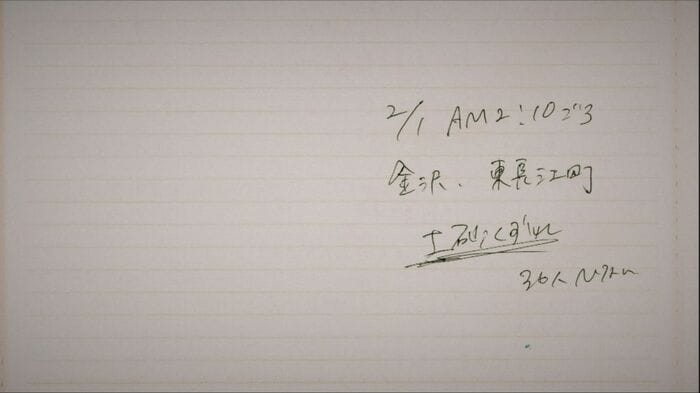 2/1 AM2:10ごろ
金沢、東長江町
土砂くずれ
36人